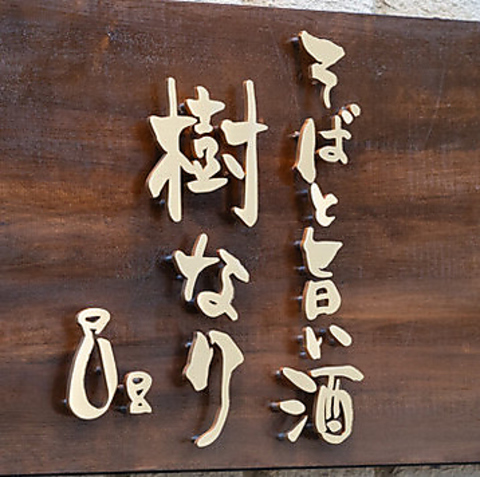 そばと旨い酒
樹なり